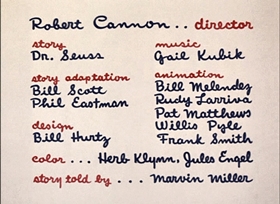 Robert Cannon . . director
story
Dr. Seuss
story adaptation
Bill Scott
Phil Eastman
design
Bill Hurtz
music
Gail Kubik
animation
Bill Melendez
Rudy Larriva
Pat Matthews
Willis Pyle
Frank Smith
color . . . Herb Klynn, Jules Engel
story told by . . . Marvin Miller